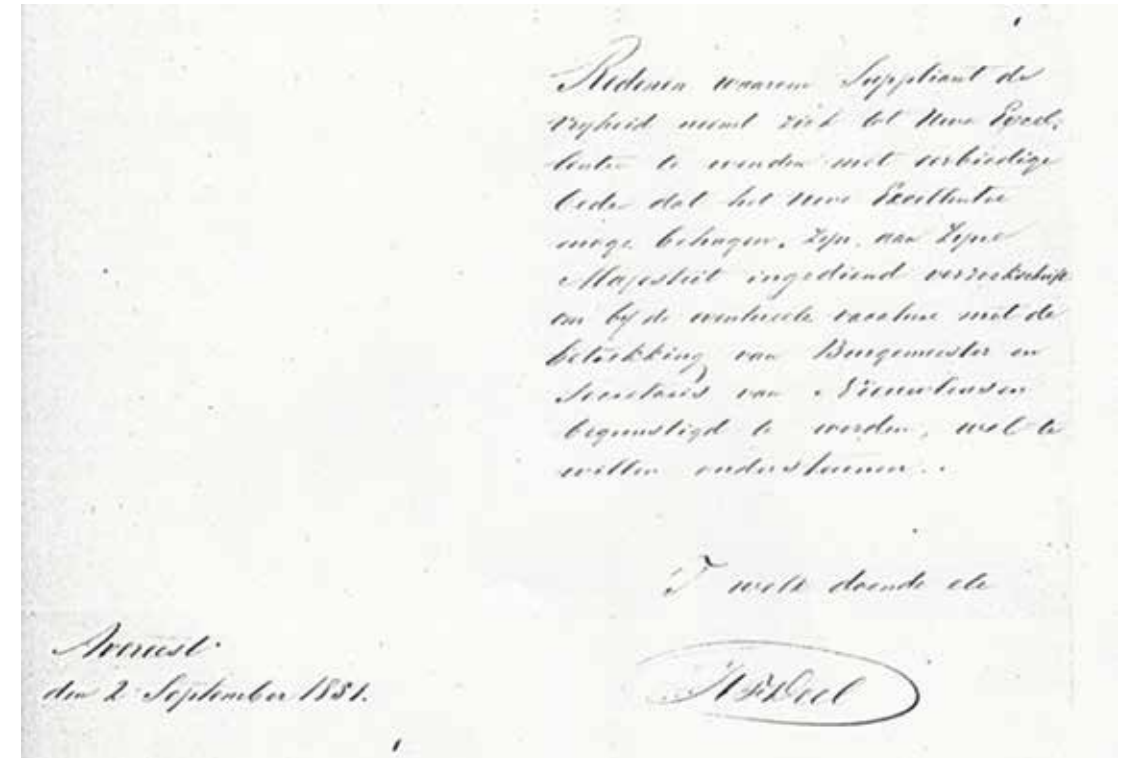 Redenen waarom Suppliant de
vryheid neemt zich tot Uwe Excel-
lentie te wenden met eerbiedige
bede dat het Uwe Excellentie
moge behagen, zyn, aan Zyne
Majesteit ingediend verzoekschrift
om by de eventueele vacature met de
betrekking van Burgemeester en
Secretaris van Nieuwleusen
begunstigd te worden, wel te
willen ondersteunen.
T welk doende etc
Avereest
den 2 September 1881.